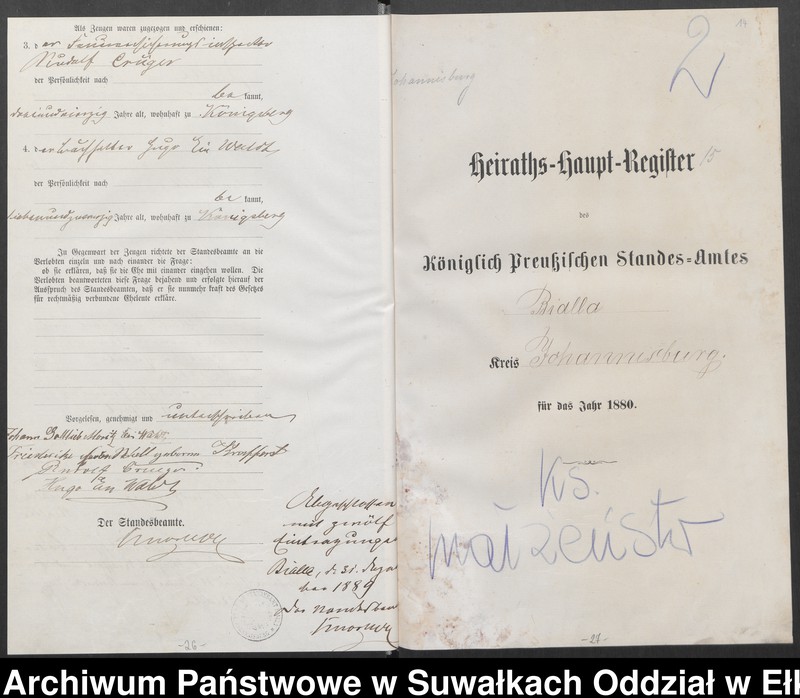 Als Zeugen waren zugezogen und erschienen:
3. der
Rudolf Crüger
der Persönlichkeit nach
bekannt,
dreiundvierzig Jahre alt, wohnhaft zu Königsberg
4. der Buchhalter Hugo Ein Waldt
der Persönlichkeit nach
bekannt,
siebenundzwanzig Jahre alt, wohnhaft zu Königsberg
In Gegenwart der Zeugen richtete der Standesbeamte an die
Verlobten einzeln und nach einander die Frage:
ob sie erklären, daß sie die Ehe mit einander eingehen wollen. Die
Verlobten beantworteten diese Frage bejahend und erfolgte hierauf der
Ausspruch des Standesbeamten, daß er sie nunmehr kraft des Gesetzes
für rechtmäßig verbundene Eheleute erkläre.
Vorgelesen, genehmigt und unterschrieben
Johann Gottlieb Moritz Ein Waldt
Friederike geborene
Rudolf Crueger
Hugo Ein Waldt
Der Standesbeamte.
Abgeschlossen
mit zwölf
Eintragungen
Bialla, d. 31. Dezem
ber 1889
Der Standesbeam
-26-
14
2
Johannisburg
Heiraths-Haupt-Register 15
des
Königlich Preußischen Standes-Amtes
Bialla
Kreis Johannisburg.
für das Jahr 1880.
Ks.
małżeństw
-27-
Archiwum Państwowe w Suwałkach Oddział w Eł